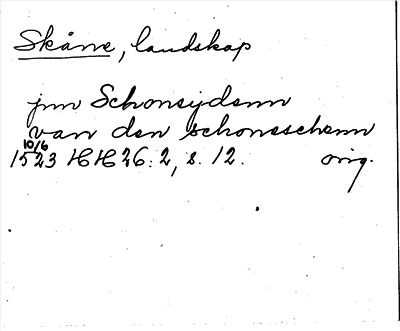 Skåne, landskap
jnn Schonsydenn
van den schonsschenn
10/6
1523 HH 26:2, s. 12. orig.